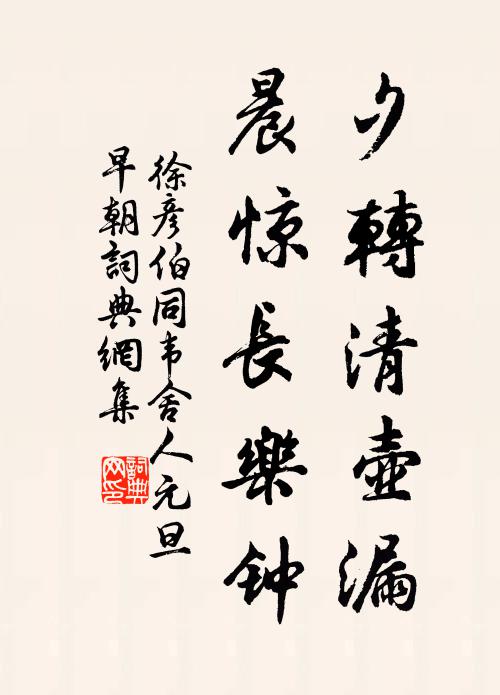 夕轉清壺漏
晨惊長樂钟
徐彦伯同韦舍人元旦
早朝詞典網集
詞典网印